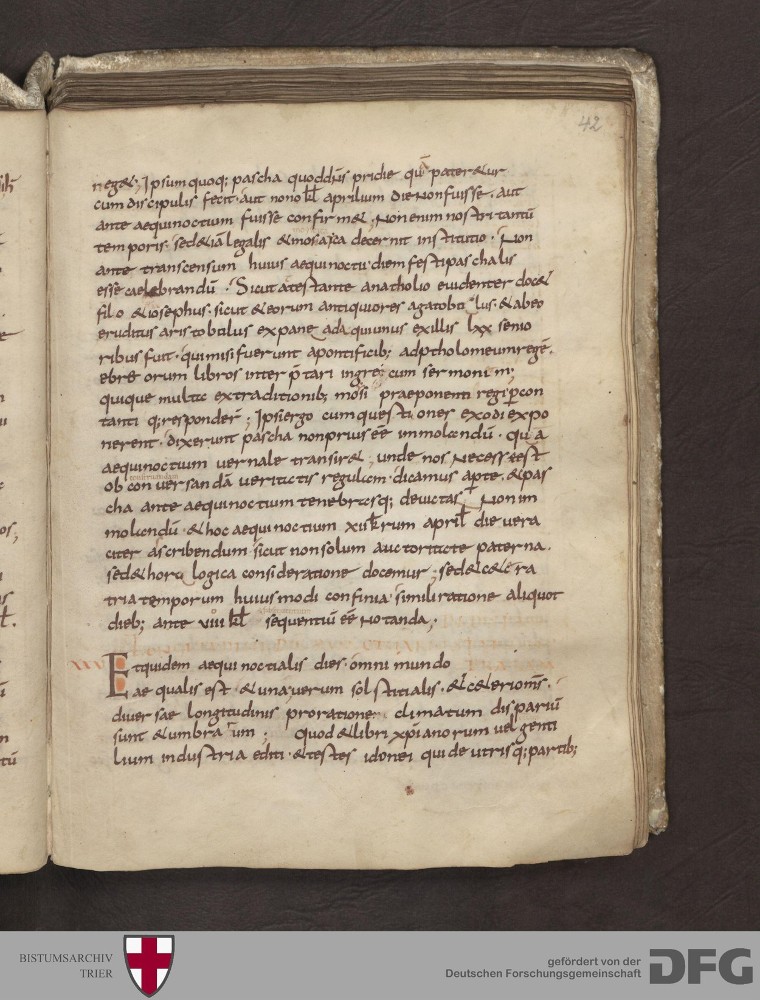 42
neget; Ipsum quoq; pascha quod dn̄s pridie quā pateretur
cum discipulis fecit. aut nono kł aprilium die non fuisse. aut
ante aequinoctium fuisse confirmet. Non enim nostri tantū
temporis. sed & iā legalis & mosaica decernit institutio. Non
ante transcensum huius aequinoctii diem festi paschalis
esse caelebrandū. Sicut atestante anatholio euidenter docet
filo & iosephus. sicut & eorum antiquiores agatobolus. & ab eo
eruditus aristobolus ex paneada qui unus ex illis lxx senio
ribus fuit. qui misi fuerunt a pontificib; ad ptholomeum regē.
ebreorum libros interp̄tari in grecum sermonem;
quique multa ex traditionib; mosi praeponenti regi percon
tantiq; responderī; Ipsi ergo cum questiones exodi expo
nerent. dixerunt pascha non prius eē immolandū. quā
aequinoctium uernale transiret; unde nos necesse est
ob conuersandā ueritatis regulam. dicamus aperte. & pas
cha ante aequinoctium tenebrasq; deuictas. Non im
molandū. & hoc aequinoctium xii kłrum aprił die uera
citer ascribendum. sicut non solum auctoritate paterna.
sed & horalogica consideratione docemur; sed & cetera
tria temporum huiusmodi confinia. simili ratione aliquot
dieb; ante uiii kł sequentiū eē notanda;
Et quidem aequinoctialis dies. omni mundo
aequalis est. & una; uerum solstitialis. & ceteri omn̄s.
diuersae longitudinis pro ratione climatum disparium
sunt & umbrarum; Quod & libri xp̄ianorum uel genti
lium industria editi. & testes idonei qui de utrisq; partib;
BISTUMSARCHIV
TRIER
gefördert von der
Deutschen Forschungsgemeinschaft
DFG